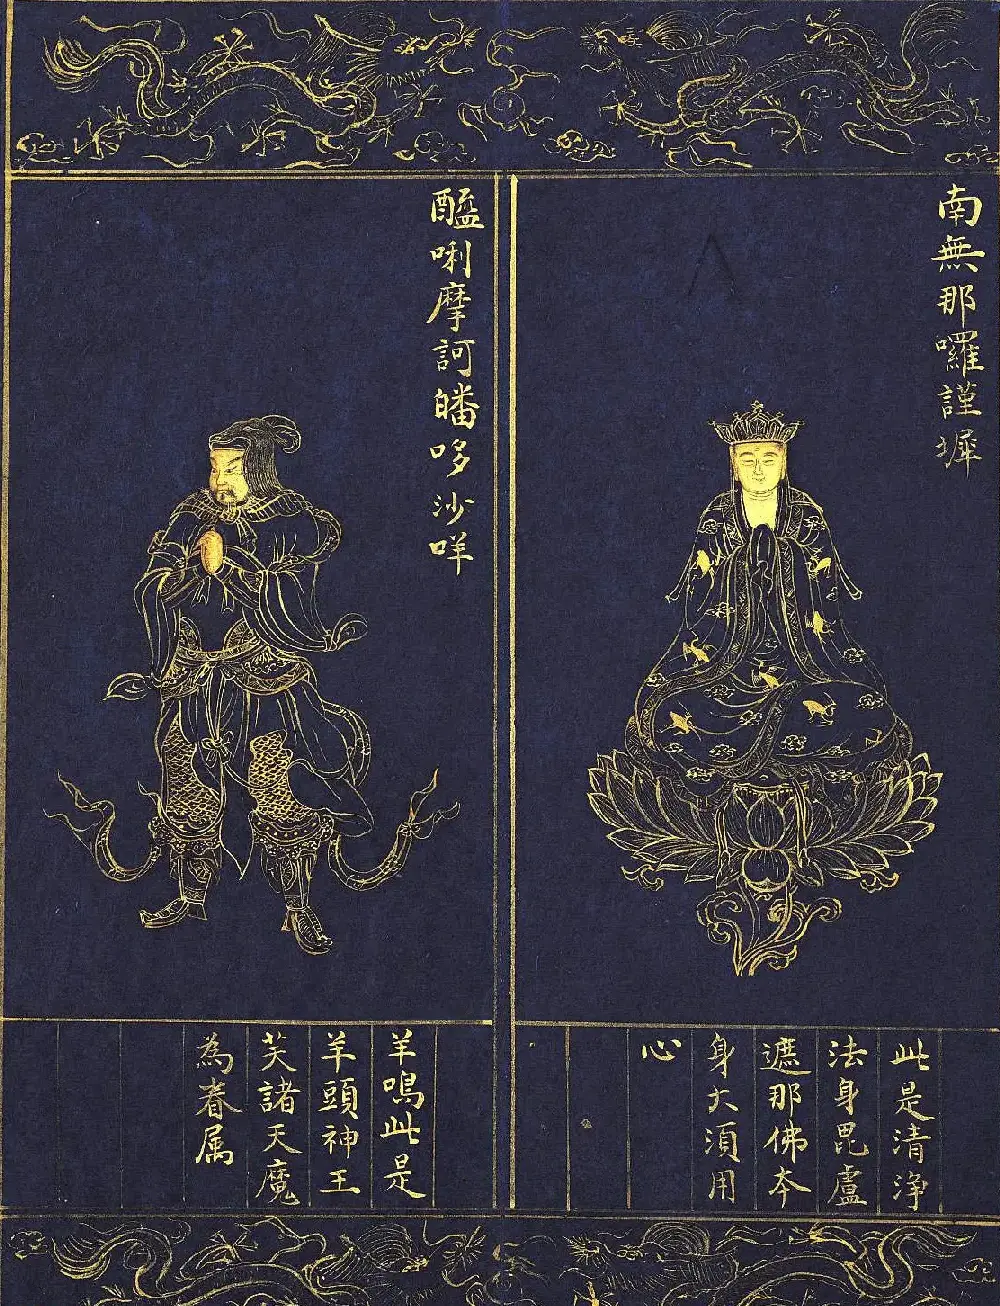 南無那囉謹墀
此是清淨
法身毘盧
遮那佛本
身大須用
心
醯唎摩訶皤哆沙咩
羊鳴此是
羊頭神王
共諸天魔
為眷属